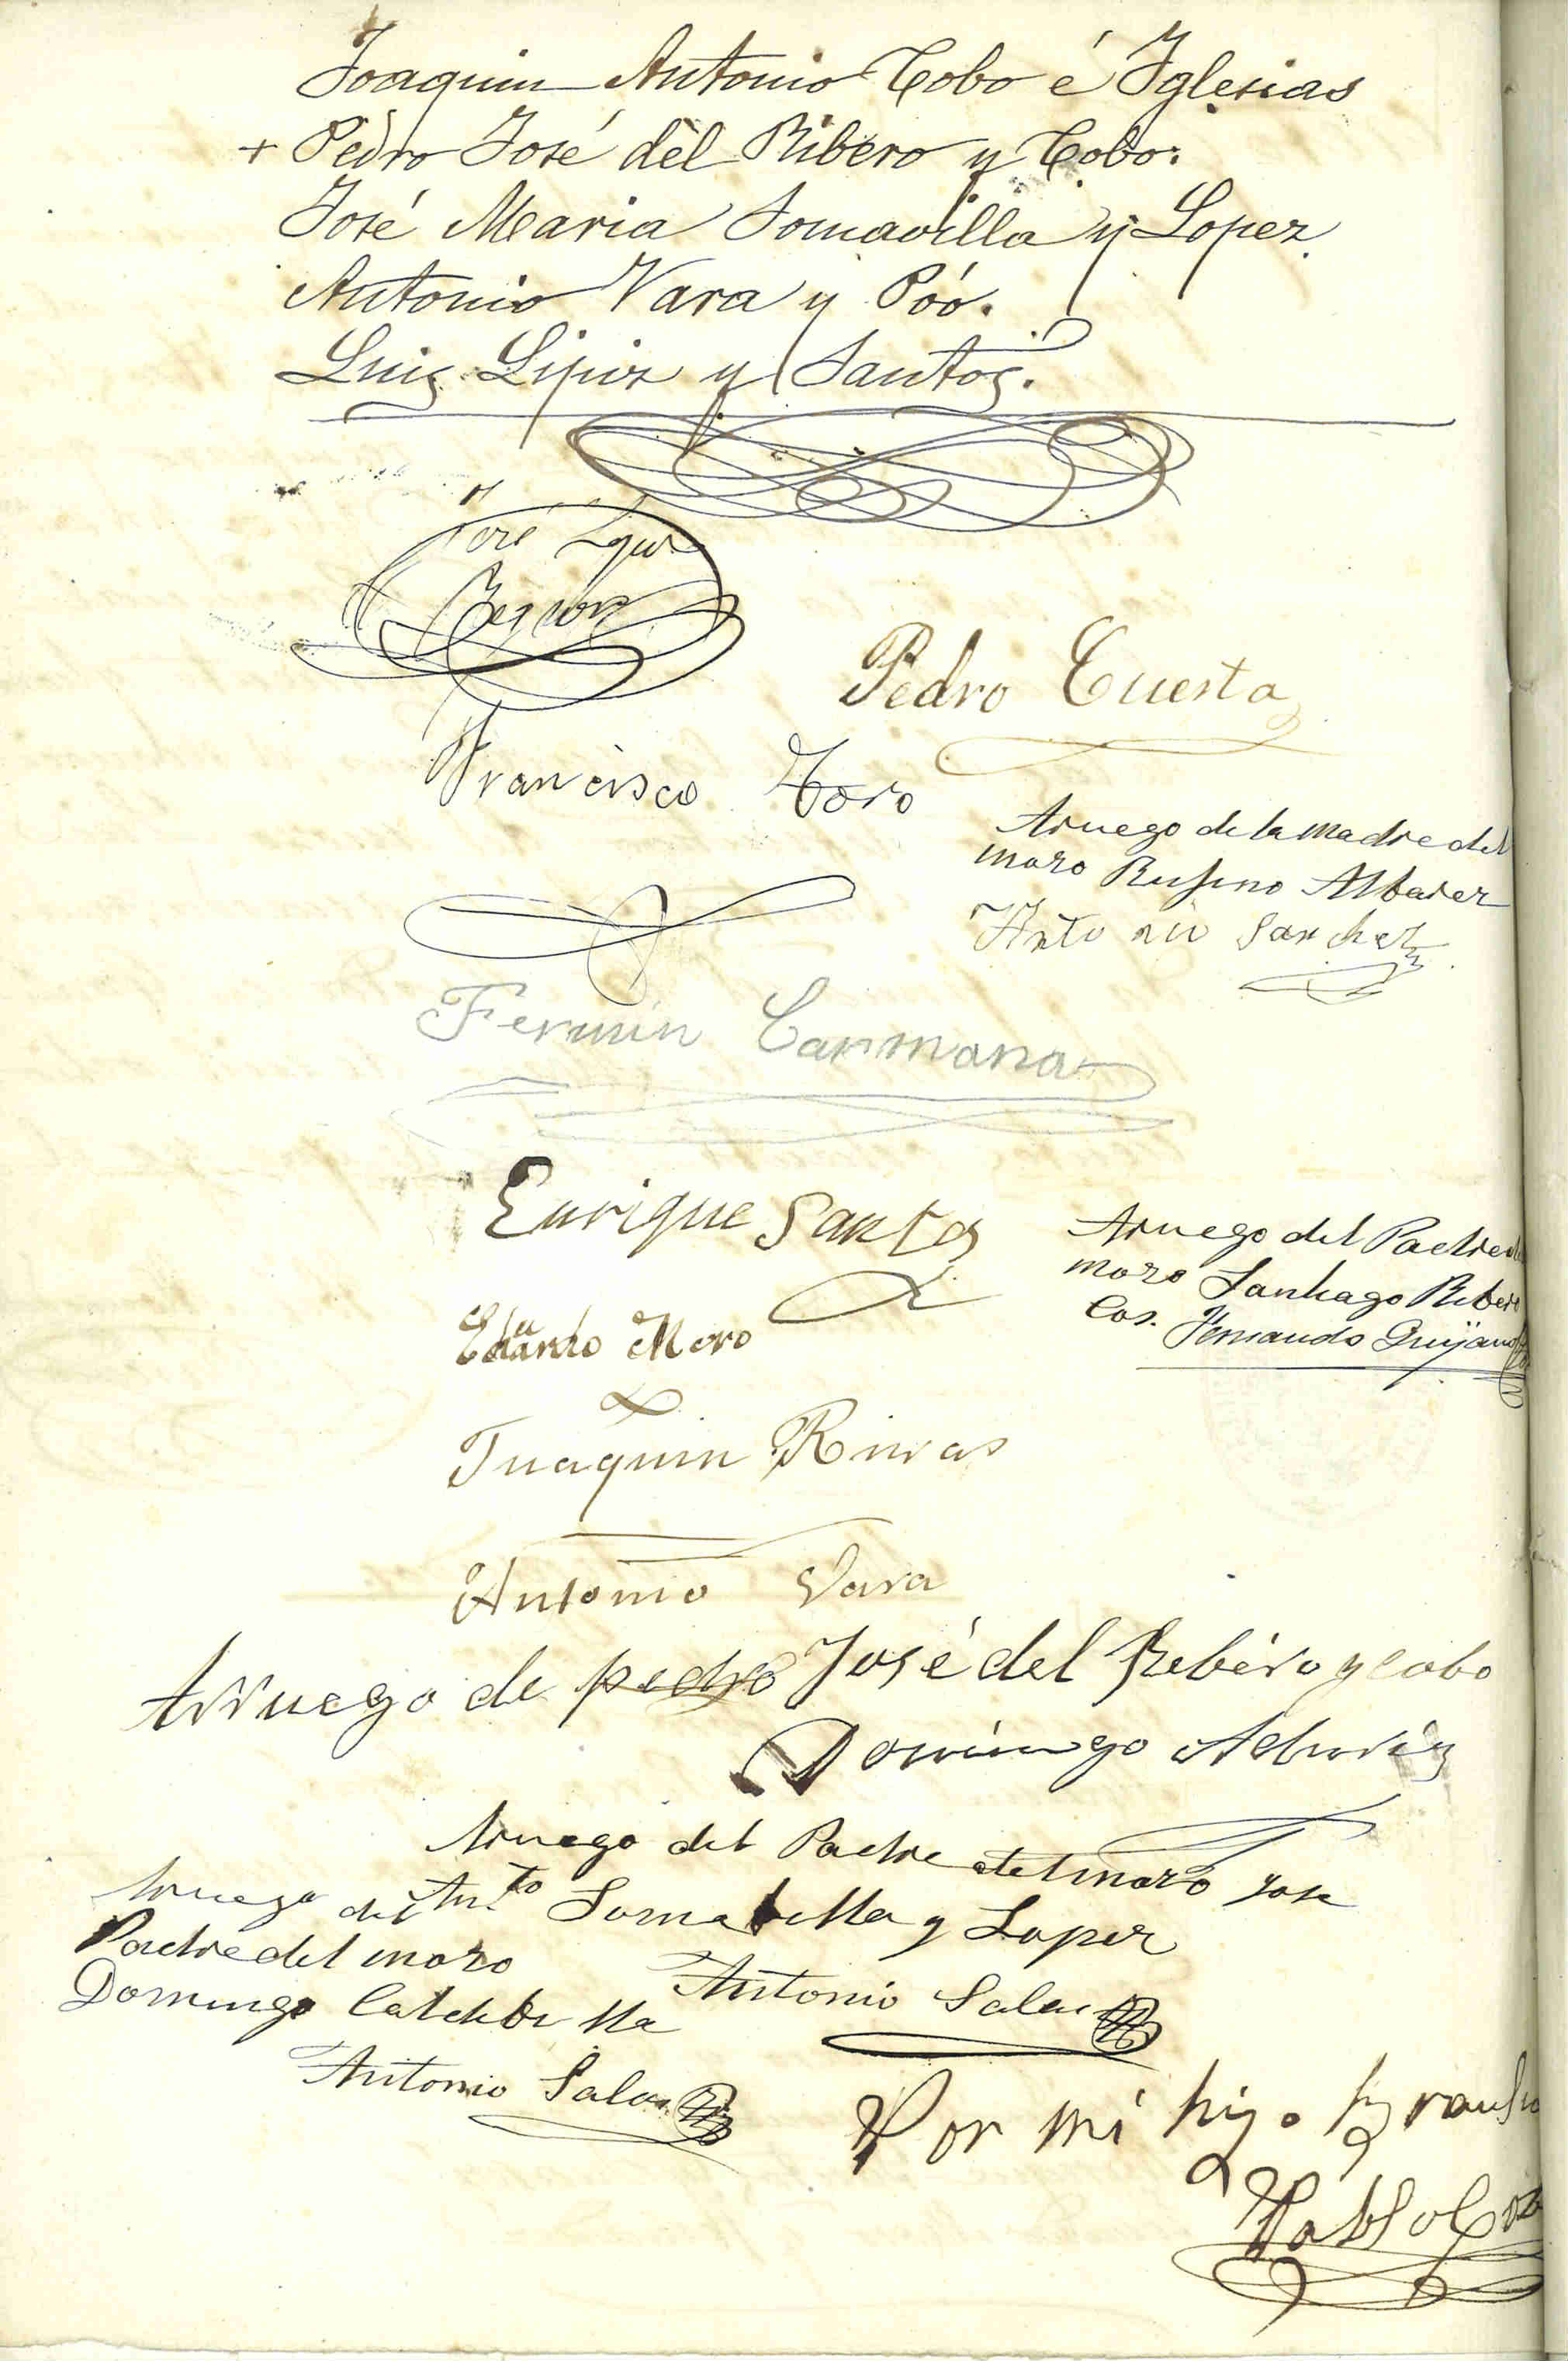 Joaquin Antonio Cobo é Iglesias
+ Pedro José del Ribero y Cobo.
José Maria Somavilla y Lopez
Antonio Vara y Póo.
Luis Lipiz y Santos.
José
Pedro Cuesta
Francisco Toro
Aruego de la Madre del
mozo Rufino Albarez
Anto nio Sanchez
Fermin Carmona
Enrique Santos
Aruego del Padre del
mozo Santiago Ribero
Cos. Fernando Quijano
Eduardo Moro
Juaquin Rivas
Antonio Vara
Arruego de pedro José del Rebero y cobo
Domingo
Aruego del Padre del mozo Jose
Anto Somabilla y Lopez
Antonio Salas
Aruego del
Padre del mozo
Domingo
Antonio Salas
Por mi hijo
Pablo